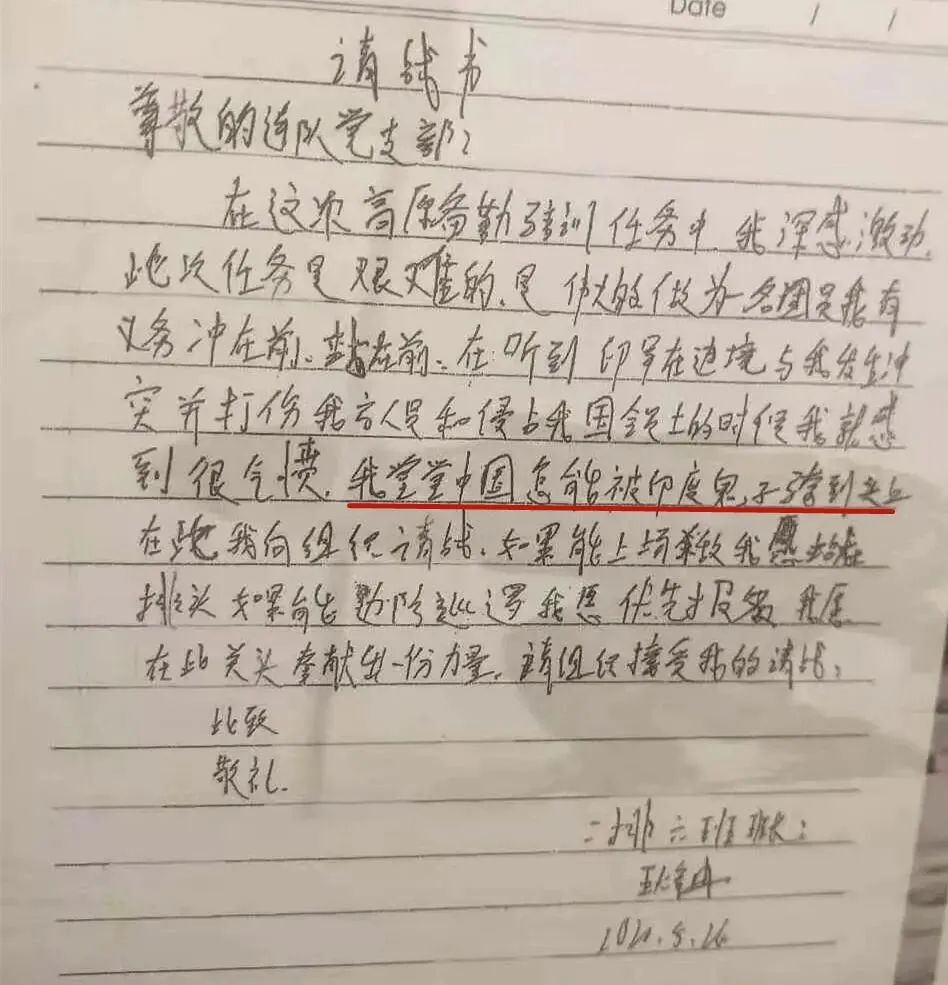 Date / /
请战书
尊敬的连队党支部：
在这次高原备勤驻训任务中，我深感激动，
此次任务是艰难的、是伟大的做为一名团员我有
义务冲在前、站在前、在听到印军在边境与我发生冲
突并打伤我方人员和侵占我国领土的时候我就感
到很气愤，我堂堂中国怎能被印度鬼子骑到头上
在此我向组织请战、如果能上场杀敌我愿站在
排头如果能边防巡逻我愿优先报名我愿
在此关头奉献出一份力量，请组织接受我的请战，
此致
敬礼．
二排六班班长：
2020.5.26